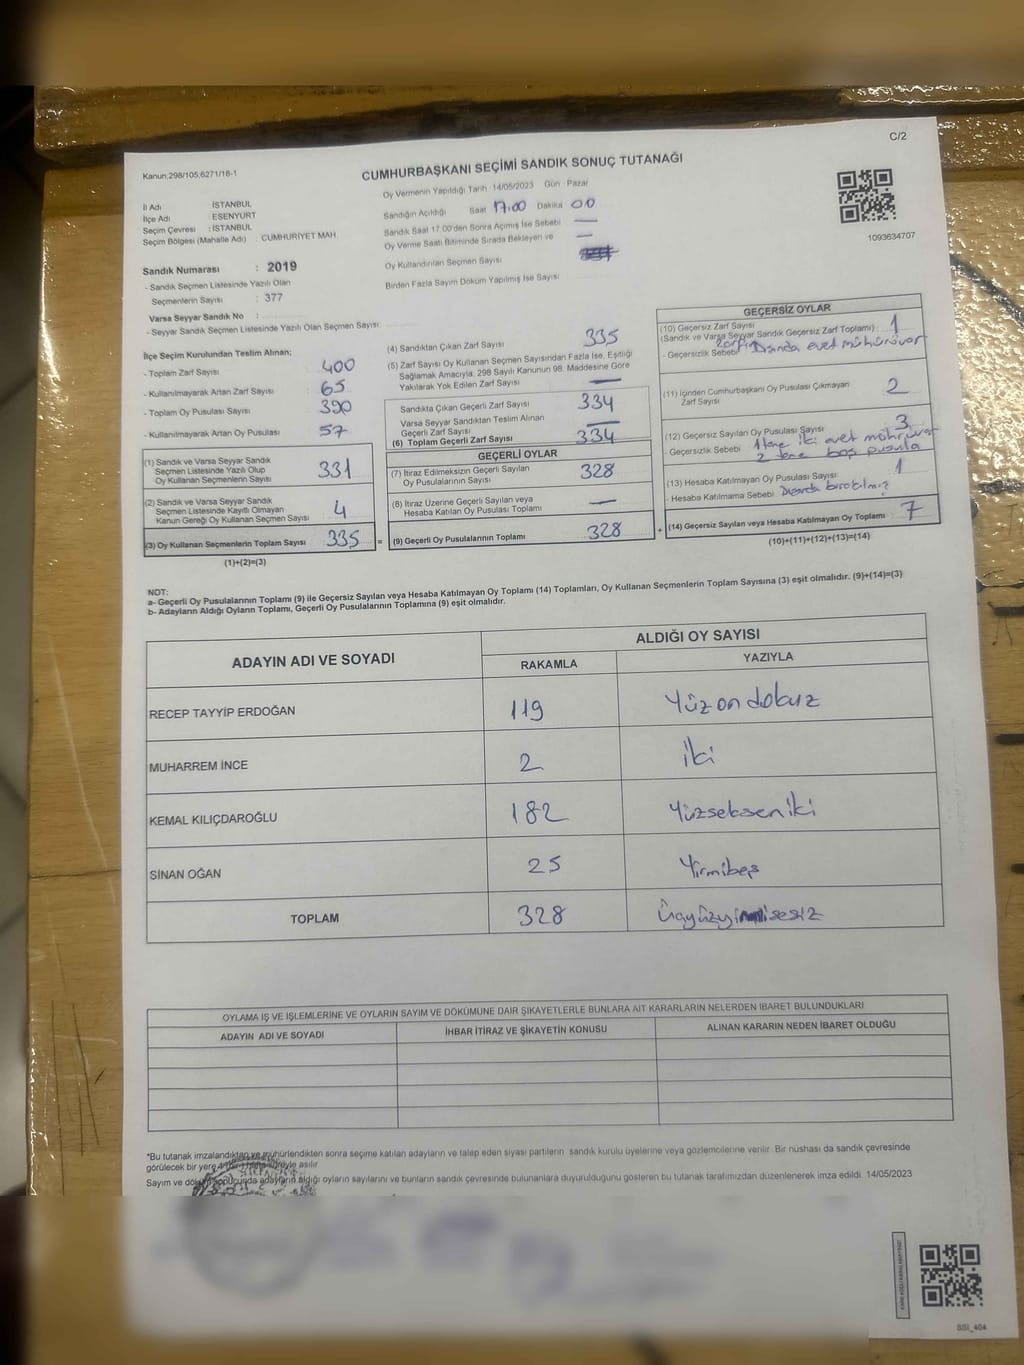 C/2
Kanun;298/105;6271/18-1
CUMHURBAŞKANI SEÇİMİ SANDIK SONUÇ TUTANAĞI
1093634707
İl Adı : İSTANBUL
İlçe Adı : ESENYURT
Seçim Çevresi : İSTANBUL
Seçim Bölgesi (Mahalle Adı) : CUMHURİYET MAH.
Sandık Numarası : 2019
- Sandık Seçmen Listesinde Yazılı Olan
Seçmenlerin Sayısı : 377
Varsa Seyyar Sandık No :
- Seyyar Sandık Seçmen Listesinde Yazılı Olan Seçmen Sayısı
Oy Vermenin Yapıldığı Tarih 14/05/2023 Gün Pazar
Sandığın Açıldığı Saat 17:00 Dakika 00
Sandık Saat 17.00'den Sonra Açımış İse Sebebi —
Oy Verme Saati Bitiminde Sırada Bekleyen ve —
Oy Kullandırılan Seçmen Sayısı
Birden Fazla Sayım Döküm Yapılmış İse Sayısı
İlçe Seçim Kurulundan Teslim Alınan;
- Toplam Zarf Sayısı 400
- Kullanılmayarak Artan Zarf Sayısı 65
- Toplam Oy Pusulası Sayısı 390
- Kullanılmayarak Artan Oy Pusulası 57
(1) Sandık ve Varsa Seyyar Sandık
Seçmen Listesinde Yazılı Olup
Oy Kullanan Seçmenlerin Sayısı 331
(2) Sandık ve Varsa Seyyar Sandık
Seçmen Listesinde Kayıtlı Olmayan
Kanun Gereği Oy Kullanan Seçmen Sayısı 4
(3) Oy Kullanan Seçmenlerin Toplam Sayısı 335 =
(1)+(2)=(3)
(4) Sandıktan Çıkan Zarf Sayısı 335
(5) Zarf Sayısı Oy Kullanan Seçmen Sayısından Fazla İse, Eşitliği
Sağlamak Amacıyla, 298 Sayılı Kanunun 98. Maddesine Göre
Yakılarak Yok Edilen Zarf Sayısı —
Sandıkta Çıkan Geçerli Zarf Sayısı 334
Varsa Seyyar Sandıktan Teslim Alınan
Geçerli Zarf Sayısı —
(6) Toplam Geçerli Zarf Sayısı 334
GEÇERLİ OYLAR
(7) İtiraz Edilmeksizin Geçerli Sayılan
Oy Pusulalarının Sayısı 328
(8) İtiraz Üzerine Geçerli Sayılan veya
Hesaba Katılan Oy Pusulası Toplamı —
(9) Geçerli Oy Pusulalarının Toplamı 328 +
GEÇERSİZ OYLAR
(10) Geçersiz Zarf Sayısı
(Sandık ve Varsa Seyyar Sandık Geçersiz Zarf Toplamı) : 1
- Geçersizlik Sebebi Dışında evet mührü var
(11) İçinden Cumhurbaşkanı Oy Pusulası Çıkmayan
Zarf Sayısı 2
(12) Geçersiz Sayılan Oy Pusulası Sayısı 3
- Geçersizlik Sebebi 1 tane iki evet mührü var
2 tane boş pusula
(13) Hesaba Katılmayan Oy Pusulası Sayısı 1
- Hesaba Katılmama Sebebi Dışarda bırakılmış
(14) Geçersiz Sayılan veya Hesaba Katılmayan Oy Toplamı 7
(10)+(11)+(12)+(13)=(14)
NOT:
a- Geçerli Oy Pusulalarının Toplamı (9) ile Geçersiz Sayılan veya Hesaba Katılmayan Oy Toplamı (14) Toplamları, Oy Kullanan Seçmenlerin Toplam Sayısına (3) eşit olmalıdır. (9)+(14)=(3)
b- Adayların Aldığı Oyların Toplamı, Geçerli Oy Pusulalarının Toplamına (9) eşit olmalıdır.
ADAYIN ADI VE SOYADI
ALDIĞI OY SAYISI
RAKAMLA YAZIYLA
RECEP TAYYİP ERDOĞAN 119 Yüz on dokuz
MUHARREM İNCE 2 iki
KEMAL KILIÇDAROĞLU 182 Yüzseksen iki
SİNAN OĞAN 25 Yirmibeş
TOPLAM 328
OYLAMA İŞ VE İŞLEMLERİNE VE OYLARIN SAYIM VE DÖKÜMÜNE DAİR ŞİKAYETLERLE BUNLARA AİT KARARLARIN NELERDEN İBARET BULUNDUKLARI
ADAYIN ADI VE SOYADI İHBAR İTİRAZ VE ŞİKAYETİN KONUSU ALINAN KARARIN NEDEN İBARET OLDUĞU
*Bu tutanak imzalandıktan ve mühürlendikten sonra seçime katılan adayların ve talep eden siyasi partilerin sandık kurulu üyelerine veya gözlemcilerine verilir. Bir nüshası da sandık çevresinde
görülecek bir yere asılır.
Sayım ve döküm sonucunda adayların aldığı oyların sayılarını ve bunların sandık çevresinde bulunanlara duyurulduğunu gösteren bu tutanak tarafımızdan düzenlenerek imza edildi. 14/05/2023
SSI_404